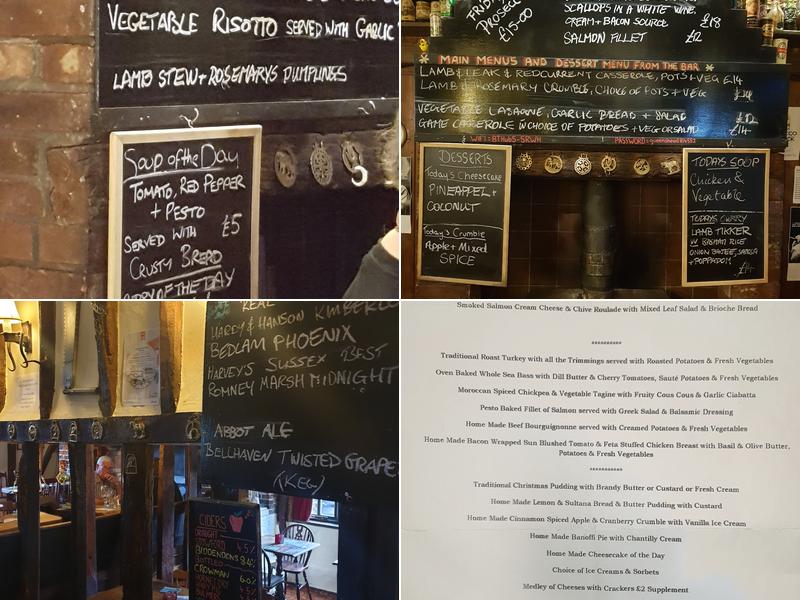 VEGETABLE RISOTTO SERVED WITH GARLIC
LAMB STEW + ROSEMARYS DUMPLINGS
Soup of the Day
TOMATO, RED PEPPER
+ PESTO
SERVED WITH £5
CRUSTY BREAD
OF THE DAY
FRIDAY
PROSECCO
£15.00
SCALLOPS IN A WHITE WINE
CREAM + BACON SOURCE £18
SALMON FILLET £12
MAIN MENUS AND DESSERT MENU FROM THE BAR
LAMB & LEAK & REDCURRENT CASSEROLE, POTS + VEG £14
LAMB & ROSEMARY CRUMBLE, CHOICE OF POTS + VEG
VEGETABLE LASAGNE, GARLIC BREAD + SALAD
GAME CASSEROLE W CHOICE OF POTATOES + VEG OR SALAD £14
WIFI: PASSWORD:
DESSERTS
Today's Cheesecake
PINEAPPEL +
COCONUT
Today's Crumble
Apple + Mixed
SPICE
TODAYS SOUP
Chicken &
Vegetable
TODAYS CURRY
LAMB TIKKER
W BASMATI RICE
ONION BAHJEE, SAMOSA
+ POPPADOM
REAL
HARDY & HANSON KIMBERLEY
BEDLAM PHOENIX
HARVEY'S SUSSEX BEST
ROMNEY MARSH MIDNIGHT
ABBOT ALE
BELLHAVEN TWISTED GRAPE
(KEG)
CIDERS
DRAUGHT
4.5%
BIDDENDENS 8.4%
BOTTLED
CROWMAN 6.0%
Smoked Salmon Cream Cheese & Chive Roulade with Mixed Leaf Salad & Brioche Bread
**********
Traditional Roast Turkey with all the Trimmings served with Roasted Potatoes & Fresh Vegetables
Oven Baked Whole Sea Bass with Dill Butter & Cherry Tomatoes, Sauté Potatoes & Fresh Vegetables
Moroccan Spiced Chickpea & Vegetable Tagine with Fruity Cous Cous & Garlic Ciabatta
Pesto Baked Fillet of Salmon served with Greek Salad & Balsamic Dressing
Home Made Beef Bourguignonne served with Creamed Potatoes & Fresh Vegetables
Home Made Bacon Wrapped Sun Blushed Tomato & Feta Stuffed Chicken Breast with Basil & Olive Butter,
Potatoes & Fresh Vegetables
**********
Traditional Christmas Pudding with Brandy Butter or Custard or Fresh Cream
Home Made Lemon & Sultana Bread & Butter Pudding with Custard
Home Made Cinnamon Spiced Apple & Cranberry Crumble with Vanilla Ice Cream
Home Made Banoffi Pie with Chantilly Cream
Home Made Cheesecake of the Day
Choice of Ice Creams & Sorbets
Medley of Cheeses with Crackers £2 Supplement